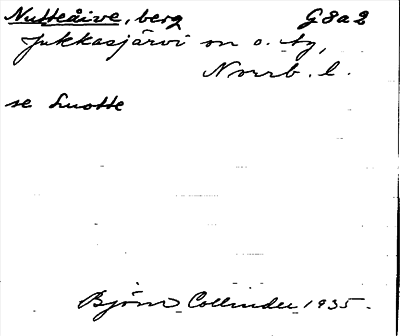 Nutteåive, berg G8a2
Jukkasjärvi sn o. tg,
Norrb. l.
se Luotte
Björn Collinder 1935.